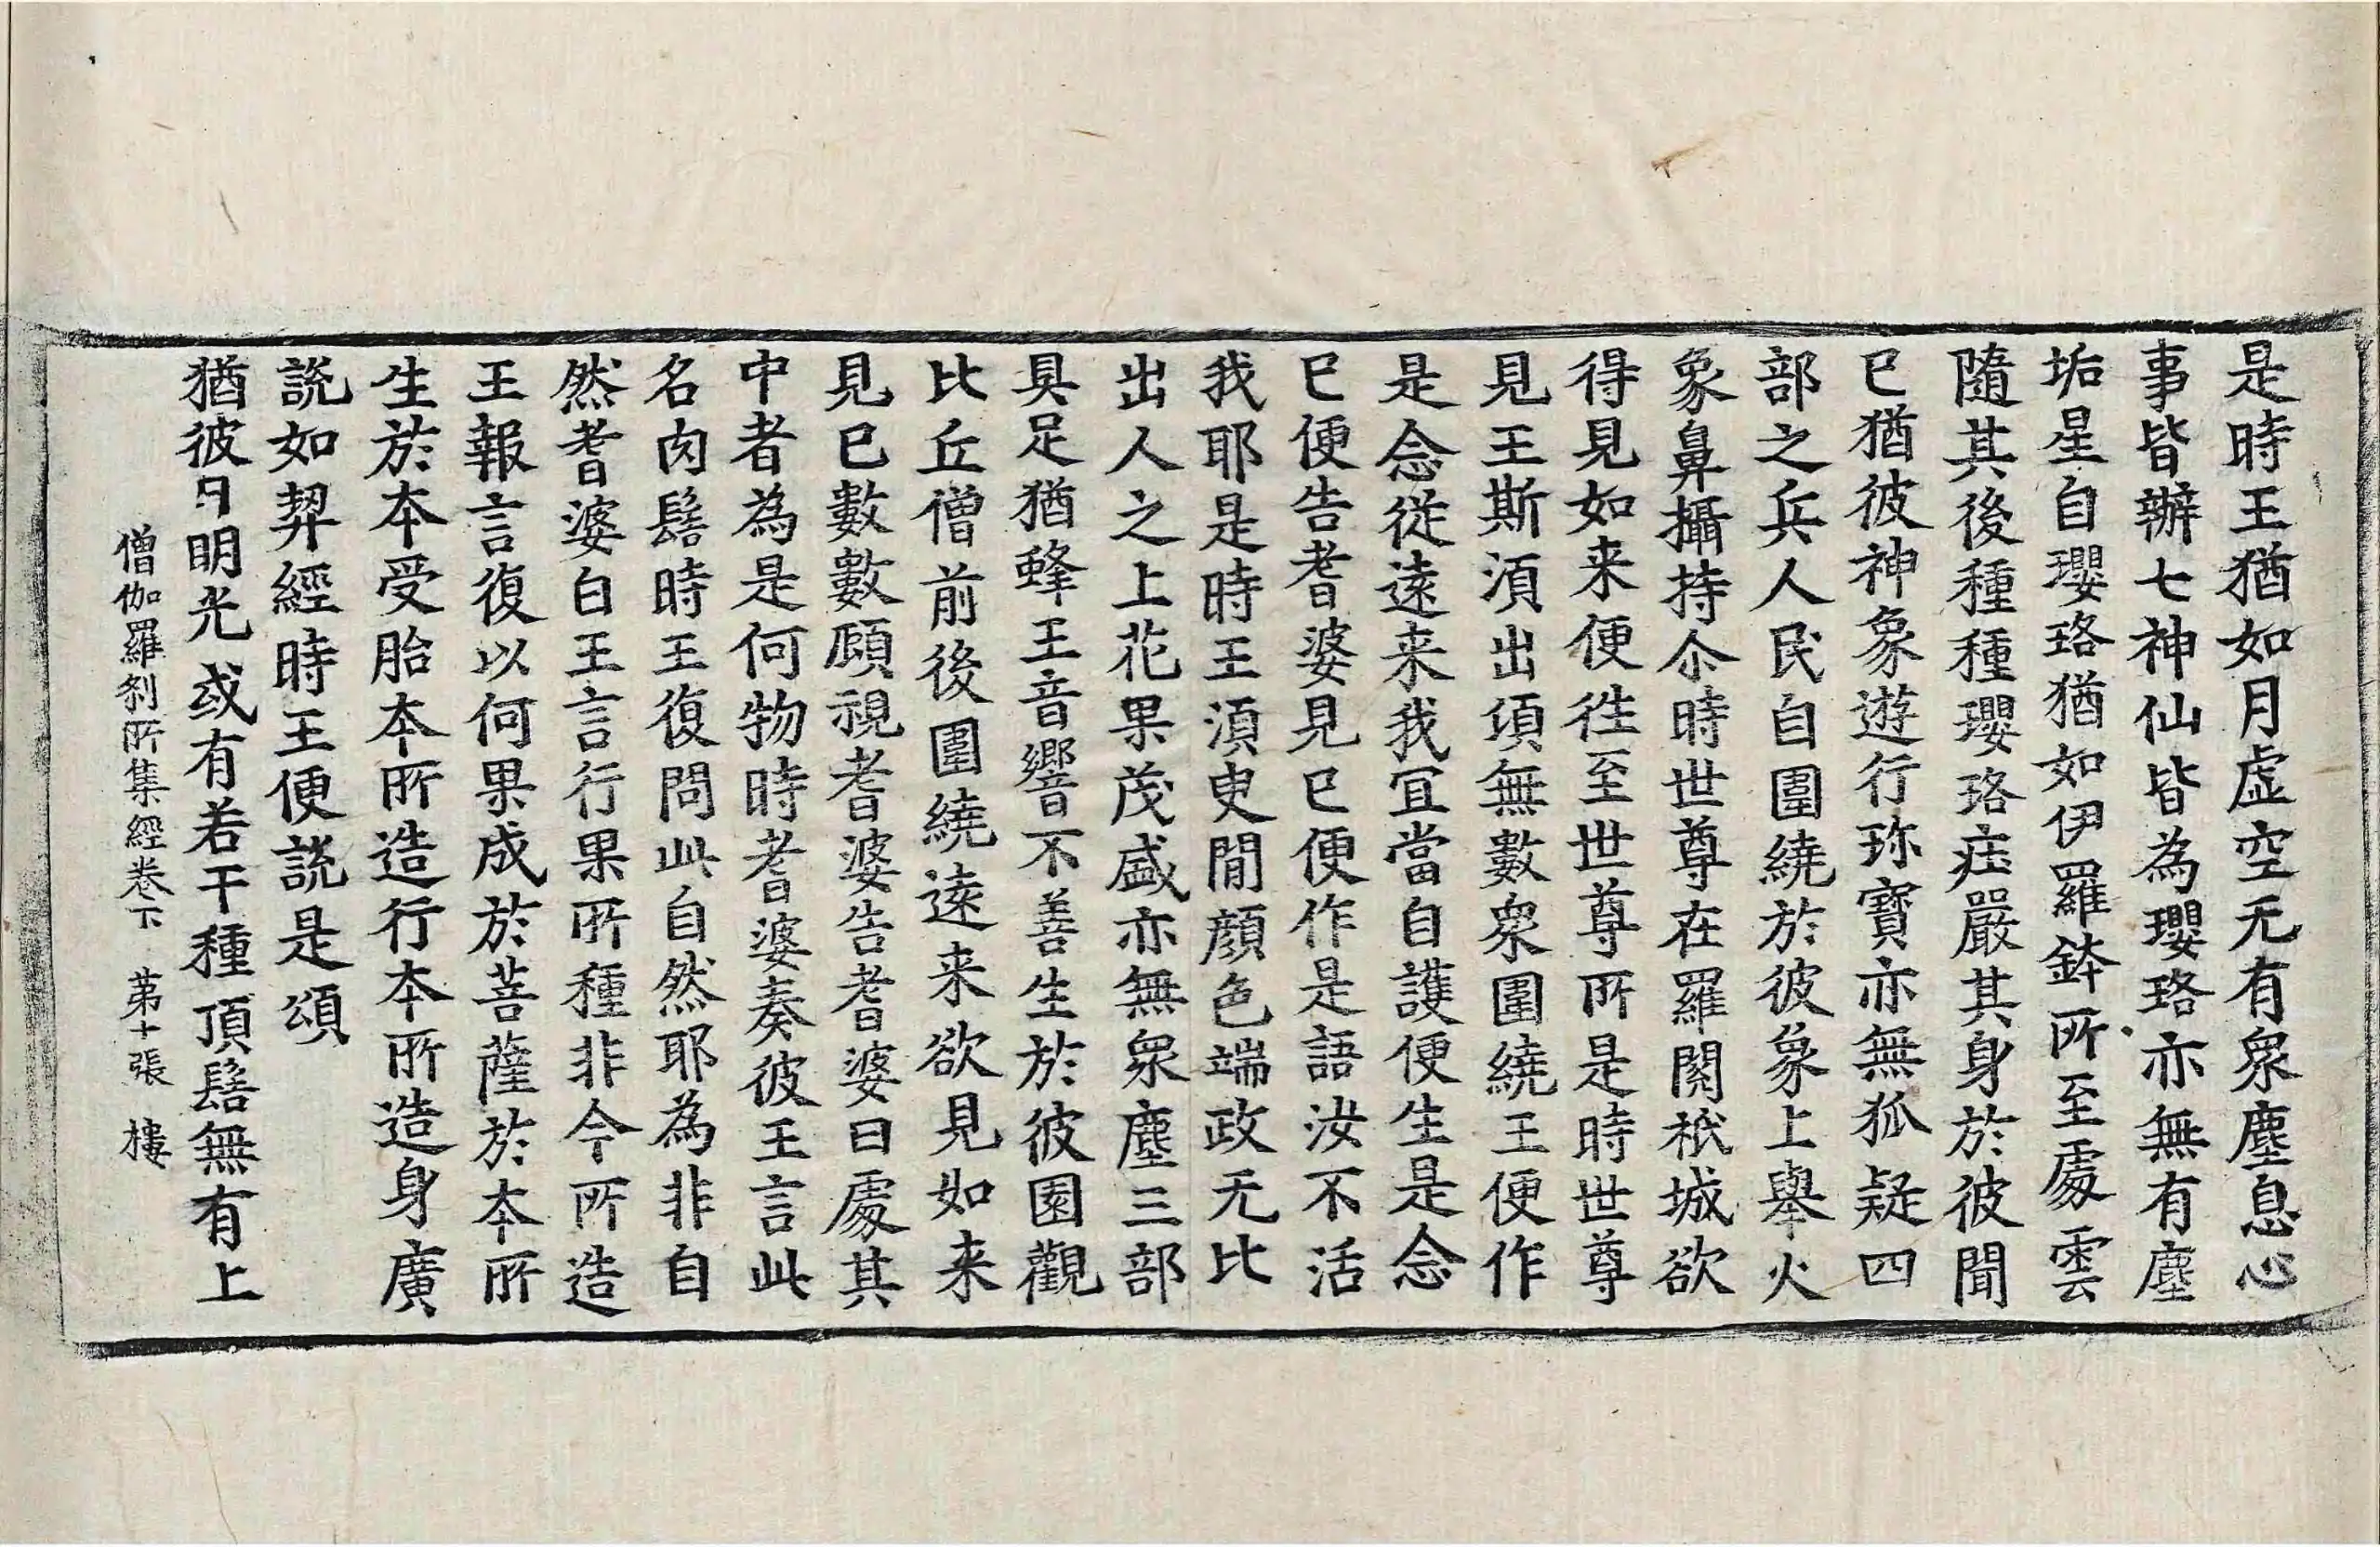 是時王猶如月虛空无有衆塵息心
事皆辦七神仙皆為瓔珞亦無有塵
垢星自瓔珞猶如伊羅鉢所至處雲
隨其後種種瓔珞莊嚴其身於彼聞
已猶彼神象遊行珎寶亦無狐疑四
部之兵人民自圍繞於彼象上舉火
象鼻攝持尒時世尊在羅閱祇城欲
得見如来便往至世尊所是時世尊
見王斯湏出頃無數衆圍繞王便作
是念從遠来我冝當自護便生是念
已便告耆婆見已便作是語汝不活
我耶是時王湏臾閒顔色端政无比
出人之上花果茂盛亦無衆塵三部
具足猶蜂王音響不善生於彼園觀
比丘僧前後圍繞遠来欲見如来
見已數數顧視耆婆告耆婆曰處其
中者為是何物時耆婆奏彼王言此
名肉髻時王復問此自然耶為非自
然耆婆白王言行果所種非今所造
王報言復以何果成於菩薩於本所
生於本受胎本所造行本所造身廣
說如契經時王便說是頌
猶彼日明光或有若干種頂髻無有上
僧伽羅刹所集經卷下　第十張　樓